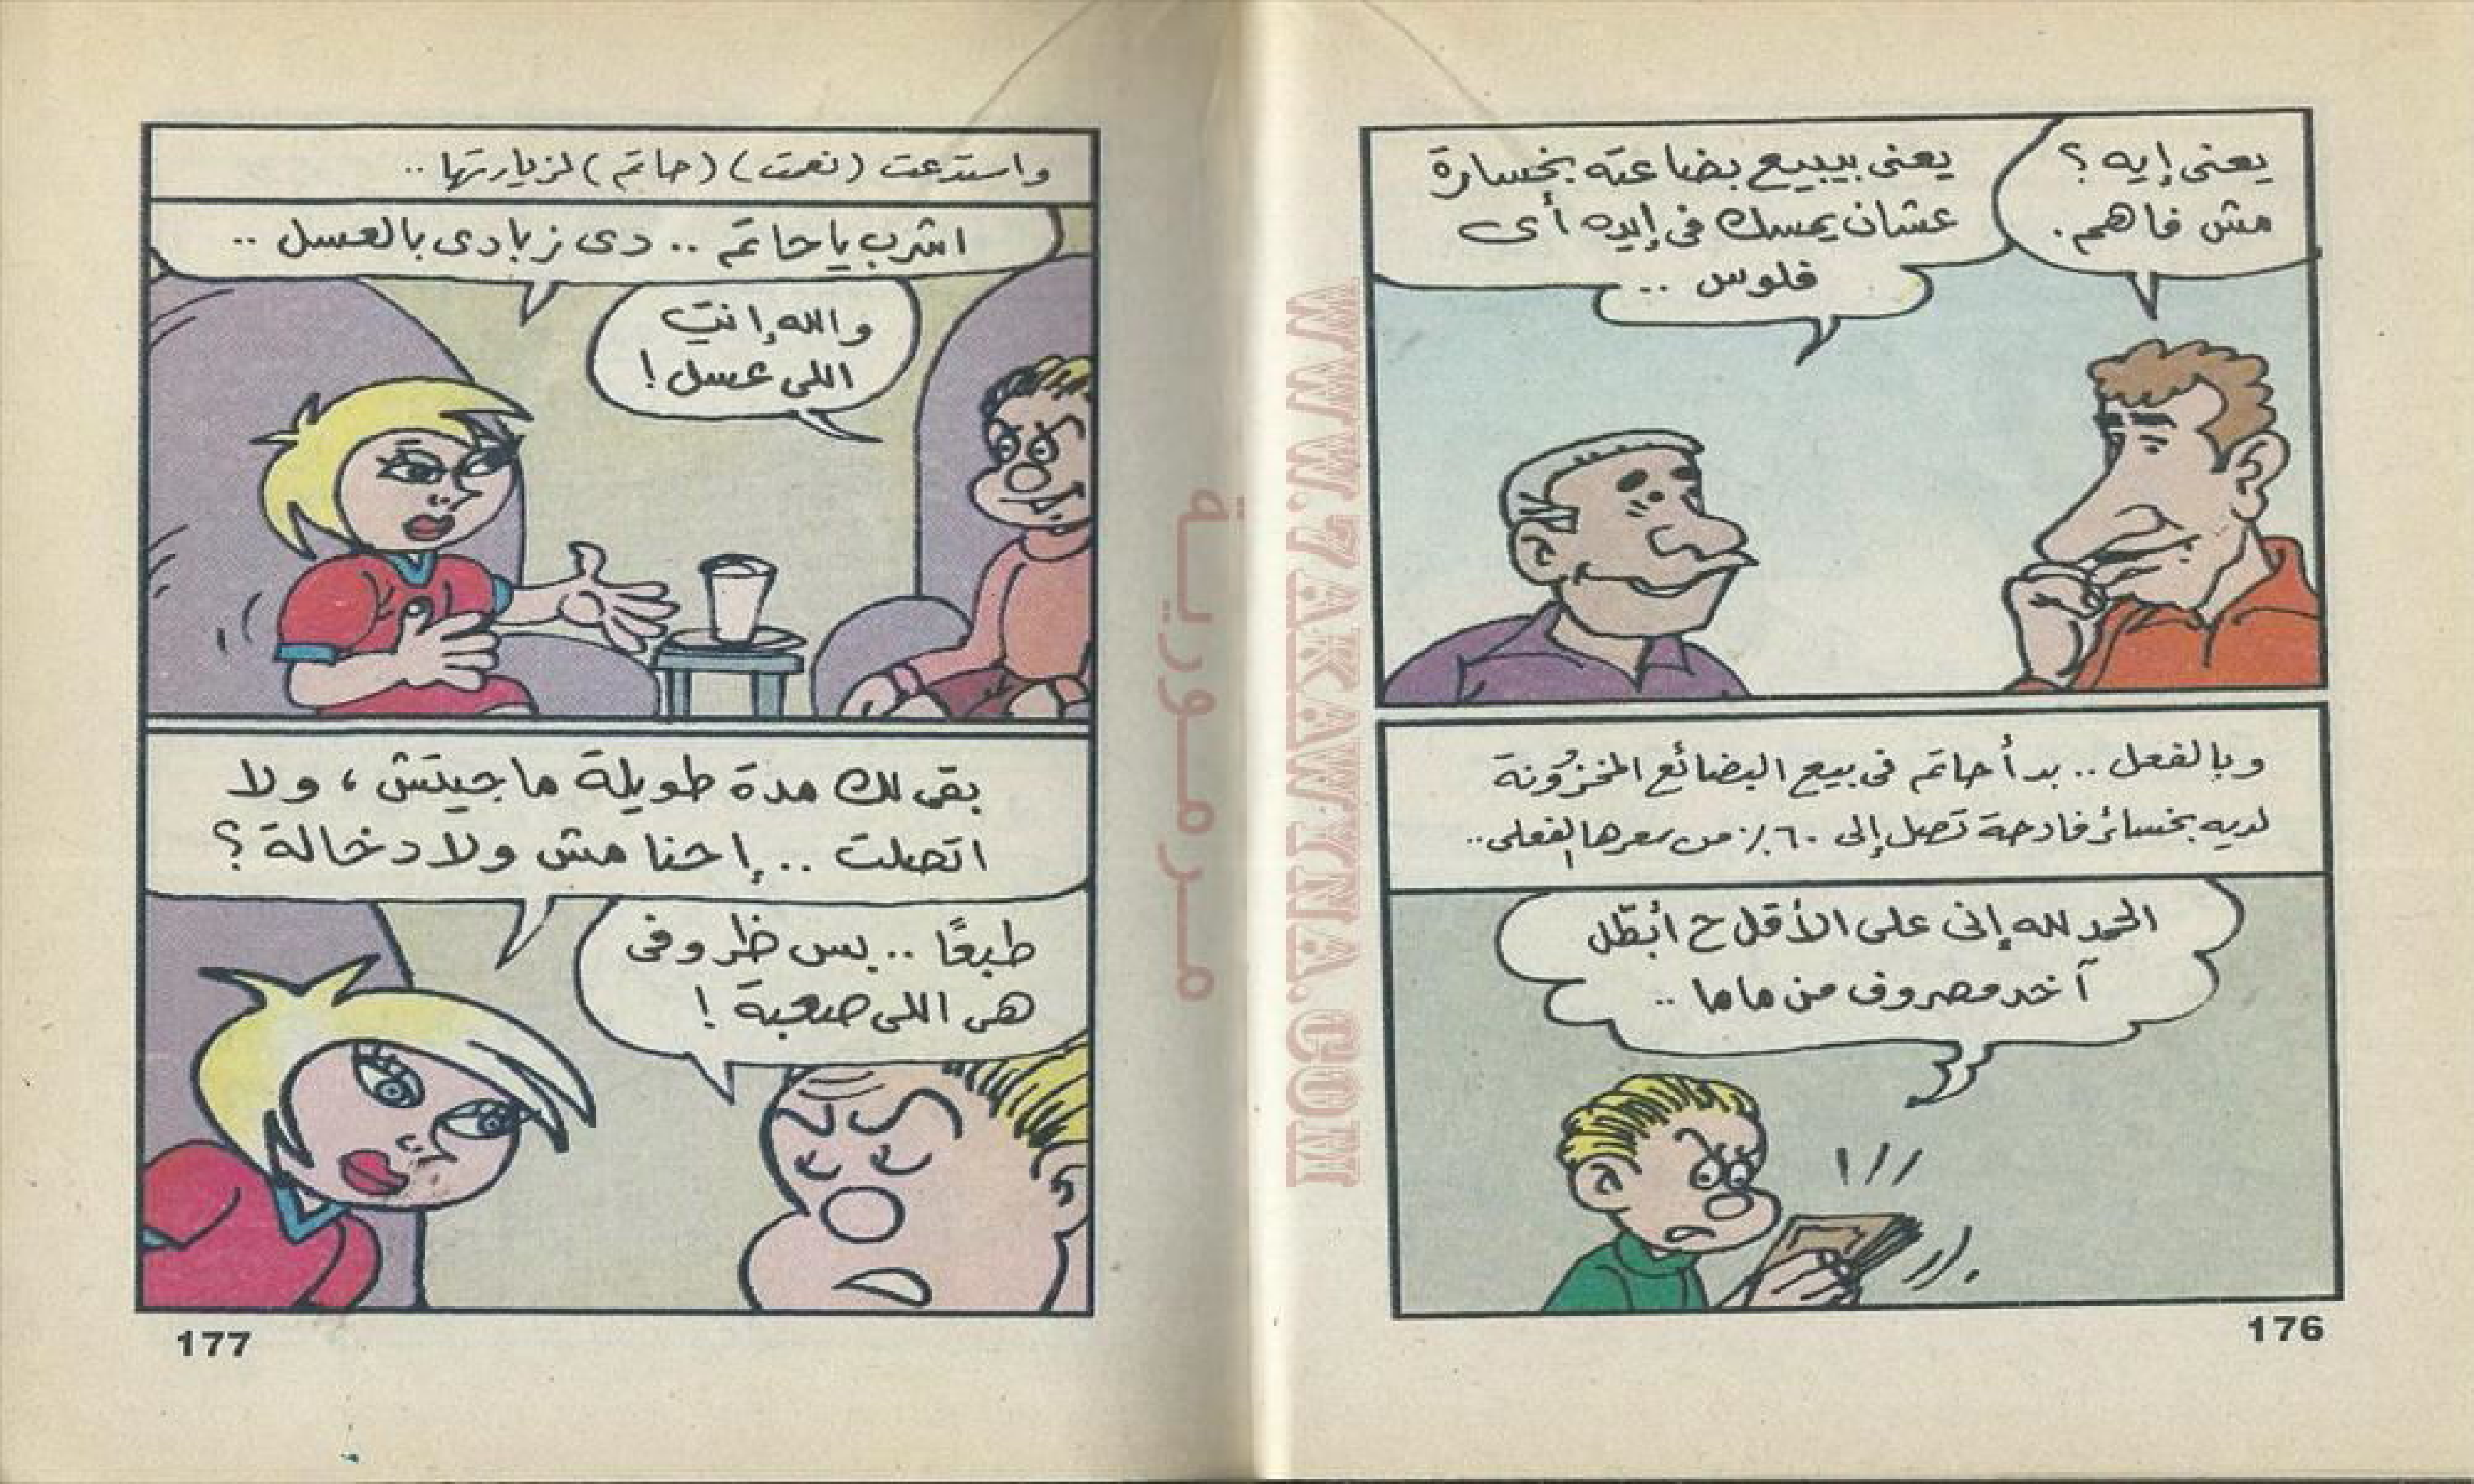 يعنى إيه ؟
مش فاهم.
يعنى بيبيع بضاعته بخسارة
عشان يمسك فى إيده أى
فلوس ..
وبالفعل .. بدأ حاتم فى بيع البضائع المخزونة
لديه بخسائر فادحة تصل إلى ٦٠٪ من سعرها الفعلى..
الحمد لله إنى على الأقل ح أبطّل
آخد مصروف من ماما ..
176
واستدعت (نعمت) (حاتم) لزيارتها ..
اشرب يا حاتم .. دى زبادى بالعسل ..
والله إنتِ
اللى عسل !
بقى لك مدة طويلة ما جيتش ، ولا
اتصلت .. إحنا مش ولاد خالة ؟
طبعًا .. بس ظروفى
هى اللى صعبة !
177
WWW.7AKAWINA.COM
مرمورية